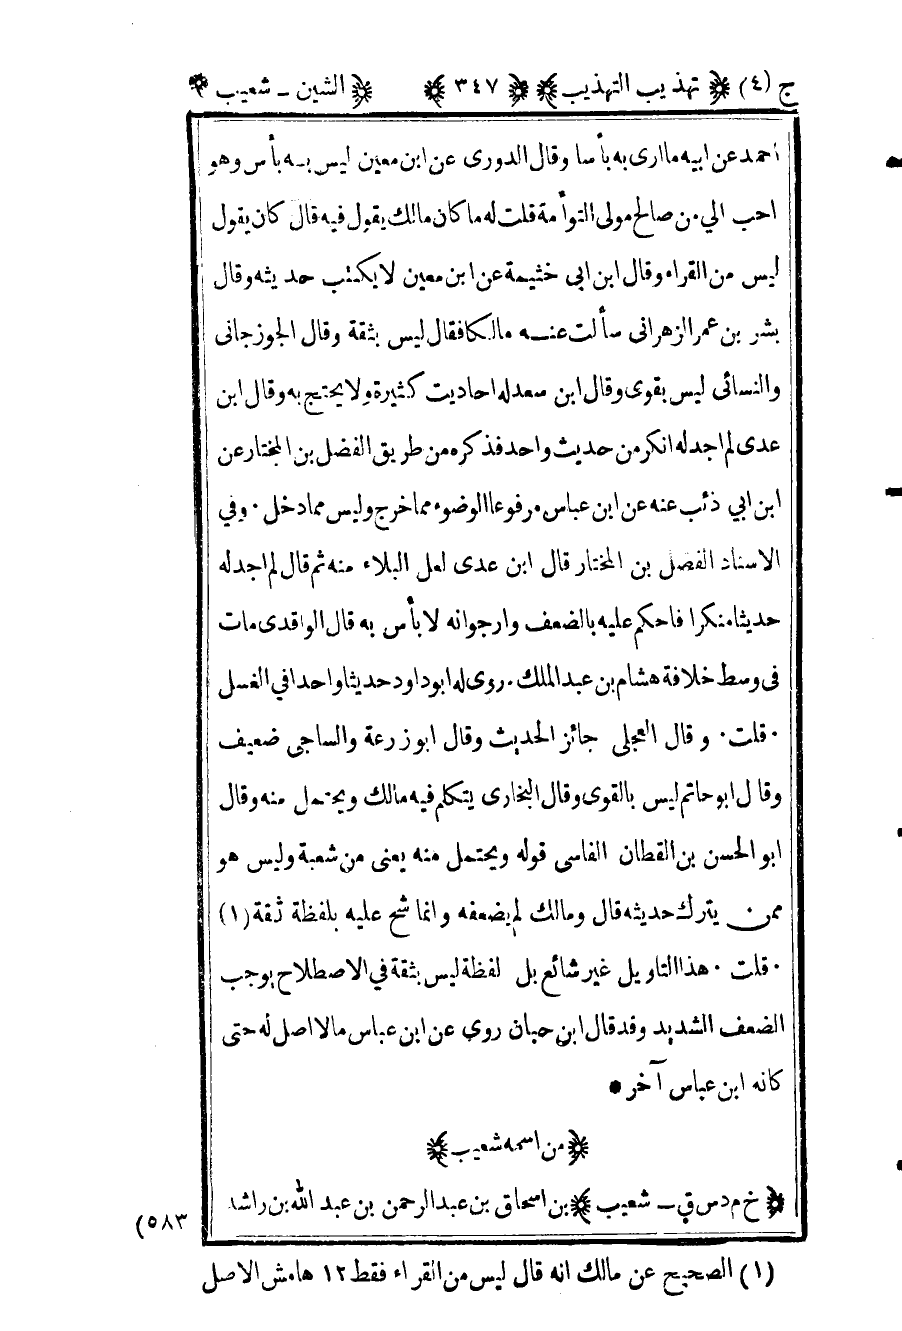 ج (٤) ﴿ تهذيب التهذيب ﴾ ﴿ ٣٤٧ ﴾ ﴿ الشين ـ شعيب ﴾
احمد عن ابيه ما ارى به بأسا وقال الدورى عن ابن معين ليس به بأس وهو
احب الي من صالح مولى التوأمة قلت له ما كان مالك يقول فيه قال كان يقول
ليس من القراء وقال ابن ابى خثيمة عن ابن معين لا يكتب حديثه وقال
بشر بن عمر الزهرانى سألت عنه مالكا فقال ليس بثقة وقال الجوزجانى
والنسائى ليس بقوى وقال ابن سعد له احاديث كثيرة ولا يحتج به وقال ابن
عدى لم اجد له انكر من حديث واحد فذكره من طريق الفضل بن المختار عن
ابن ابي ذئب عنه عن ابن عباس مرفوعا الوضوء مما خرج وليس مما دخل ٠ وفي
الاسناد الفضل بن المختار قال ابن عدى لعل البلاء منه ثم قال لم اجد له
حديثا منكرا فاحكم عليه بالضعف وارجو انه لا بأس به قال الواقدى مات
فى وسط خلافة هشام بن عبد الملك ٠ روى له ابو داود حديثا واحدا في الغسل
٠ قلت ٠ وقال العجلى جائز الحديث وقال ابو زرعة والساجى ضعيف
وقال ابو حاتم ليس بالقوى وقال البخارى يتكلم فيه مالك ويحتمل منه وقال
ابو الحسن بن القطان الفاسى قوله ويحتمل منه يعنى من شعبة وليس هو
ممن يترك حديثه قال ومالك لم يضعفه وانما شح عليه بلفظة ثقة (١)
٠ قلت ٠ هذا التاويل غير شائع بل لفظة ليس بثقة في الاصطلاح يوجب
الضعف الشديد وقد قال ابن حبان روى عن ابن عباس ما لا اصل له حتى
كانه ابن عباس آخر ●
﴿ من اسمه شعيب ﴾
﴿ خ م د س ق ـ شعيب ﴾ بن اسحاق بن عبد الرحمن بن عبد الله بن راشد
(٥٨٣
(١) الصحيح عن مالك انه قال ليس من القراء فقط ١٢ هامش الاصل